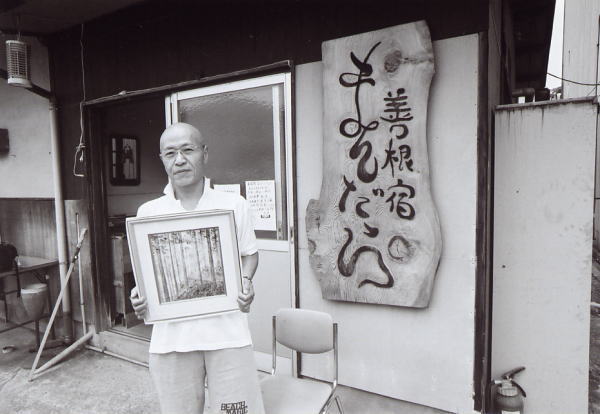 善根宿
まんだら
BEACH
MAGIC